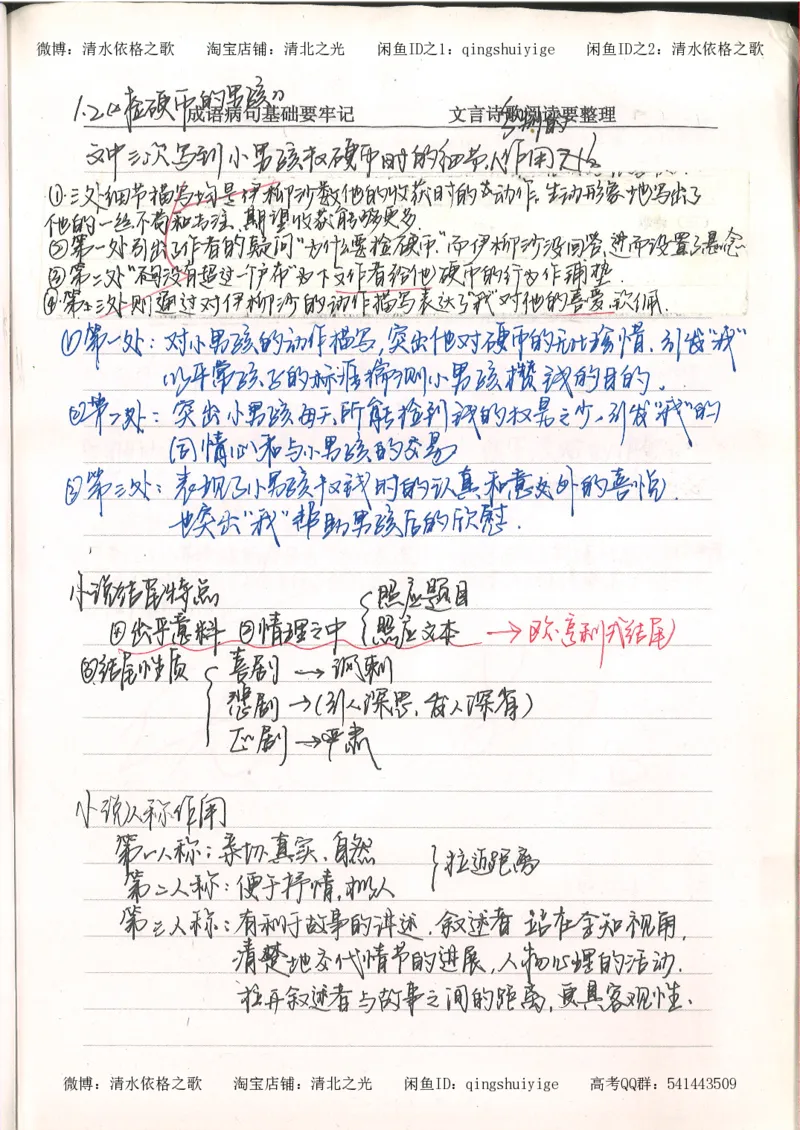 微博：清水依格之歌 淘宝店铺：清北之光 闲鱼ID之1：qingshuiyige 闲鱼ID之2：清水依格之歌
1.2《捡硬币的男孩》
成语病句基础要牢记 文言诗歌阅读要整理
文中三次写到小男孩数硬币时的细节，作用
①三处细节描写均是伊柳沙数他的收获时的动作，生动形象地写出了
他的一丝不苟和专注，期望收获能够更多
②第一处引出了作者的疑问“为什么要捡硬币”而伊柳沙没回答，进而设置了悬念
③第二处“不没有超过一个卢布”为下文作者给他硬币的行为作铺垫
④第三处则通过对伊柳沙的动作描写表达了“我”对他的喜爱、钦佩
①第一处：对小男孩的动作描写，突出他对硬币的无比珍惜，引发“我”
以平常孩子的标准揣测小男孩攒钱的目的。
②第二处：突出小男孩每天所能捡到钱的数量之少，引发“我”的
同情心和与小男孩的交易
③第三处：表现了小男孩数钱时的认真和意外的喜悦，
也突出“我”帮助男孩后的欣慰．
小说结尾特点
①出乎意料 ②情理之中 照应题目
照应文本 →欧·亨利式结尾
③结尾性质 喜剧→讽刺
悲剧→（引人深思，发人深省）
正剧→严肃
小说人称作用
第一人称：亲切真实、自然
第二人称：便于抒情，拟人 拉近距离
第三人称：有利于故事的讲述，叙述者站在全知视角，
清楚地交代情节的进展，人物心理的活动．
拉开叙述者与故事之间的距离，更具客观性．
微博：清水依格之歌 淘宝店铺：清北之光 闲鱼ID：qingshuiyige 高考QQ群：541443509